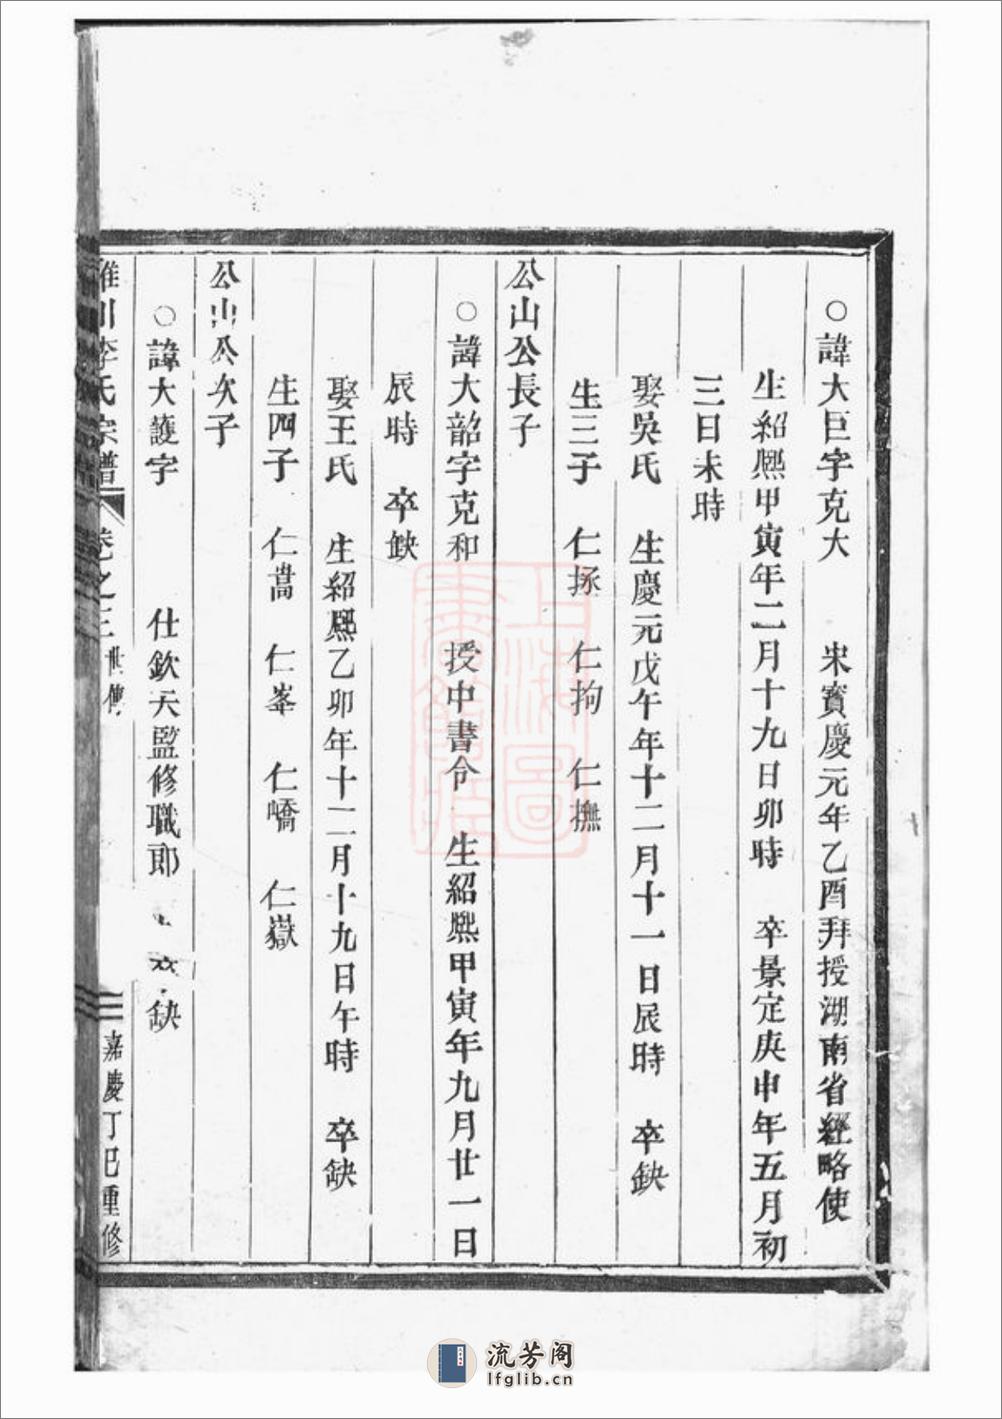 ○諱大巨字克大 宋寶慶元年乙酉拜授湖南省經略使
生紹熈甲寅年二月十九日卯時 卒景定庚申年五月初
三日未時
娶吳氏 生慶元戊午年十二月十一日辰時 卒缺
生三子 仁拯 仁拘 仁撫
公山公長子
○諱大韶字克和 授中書令 生紹熈甲寅年九月廿一日
辰時 卒缺
娶王氏 生紹熈乙卯年十二月十九日午時 卒缺
生四子 仁嵩 仁峯 仁嶠 仁嶽
公山公次子
○諱大護字 仕欽天監修職郎 缺
川李氏宗譜 卷之三 世傳 嘉慶丁巳重修
上海圖書館藏
流芳阁
lfglib.cn